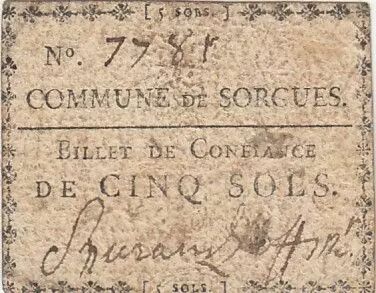 [5 SOLS.]
N°. 7781
COMMUNE DE SORGUES.
BILLET DE CONFIANCE
DE CINQ SOLS.
[5 SOLS.]